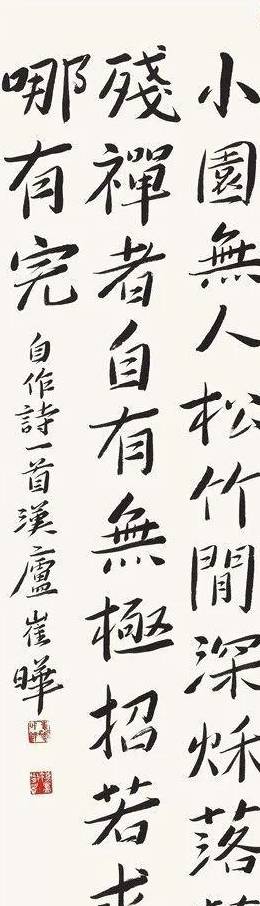 小園無人松竹閒深秋落
殘禪者自有無極招若
哪有完
自作詩一首漢廬崔曄